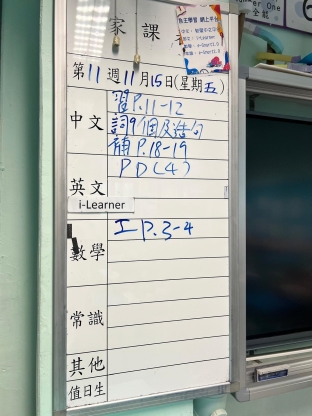 家課
自主學習 網上平台
第11週11月15日(星期五)
中文
習P.11-12
詞9個及造句
補P.18-19
英文
PD(4)
i-Learner
數學
工P.3-4
常識
其他
值日生